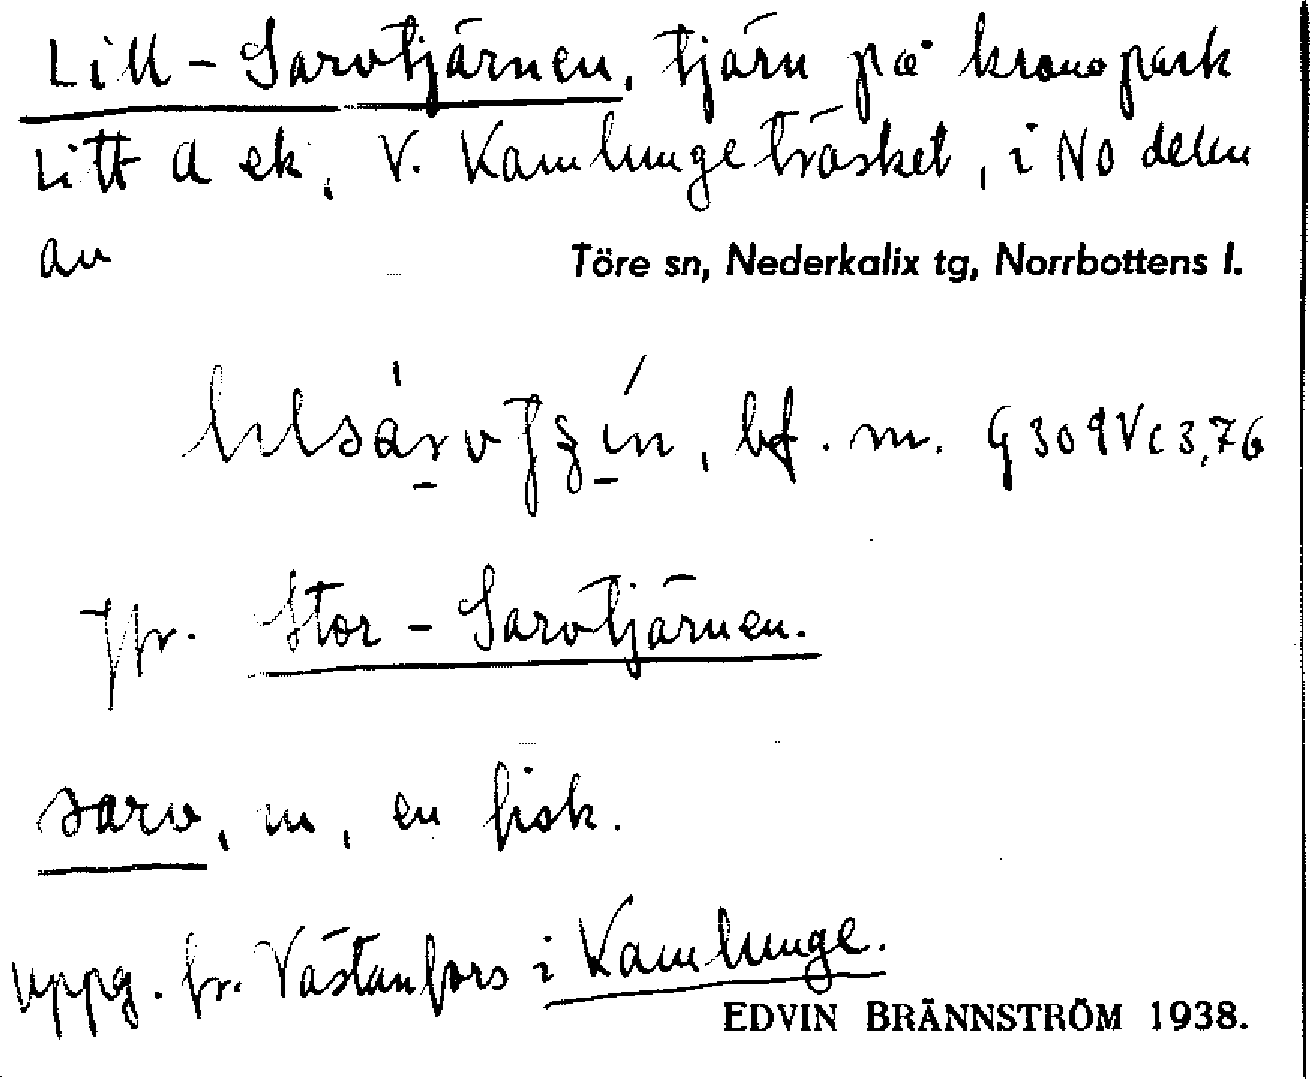 Lill-Sarvtjärnen, tjärn på kronopark
Litt A ek, V. Kamlungeträsket, i NO delen
av
Töre sn, Nederkalix tg, Norrbottens l.
bf. m. G 309 V c 3,76
Jfr. Stor-Sarvtjärnen.
sarv, m, en fisk.
uppg. fr. Västanfors i Kamlunge.
EDVIN BRÄNNSTRÖM 1938.